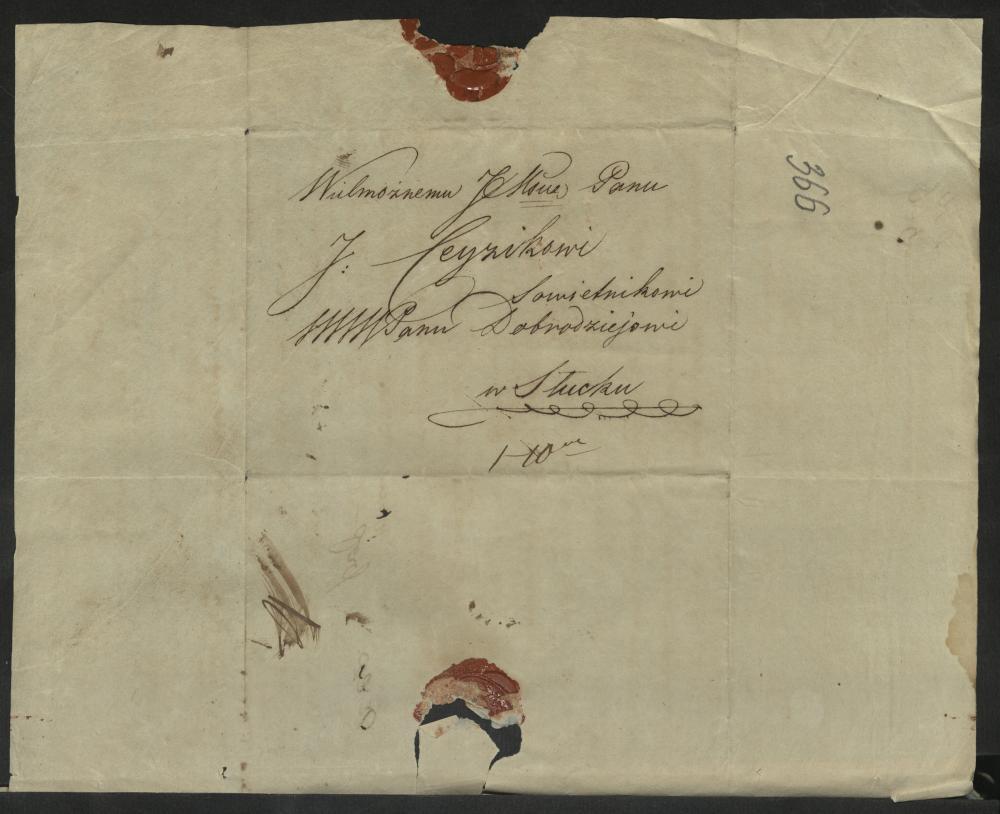 Wielmożnemu JMoue Panu
J: Ceyzikowi
Sowietnikowi
WWWPanu Dobrodziejowi
w Słucku
366